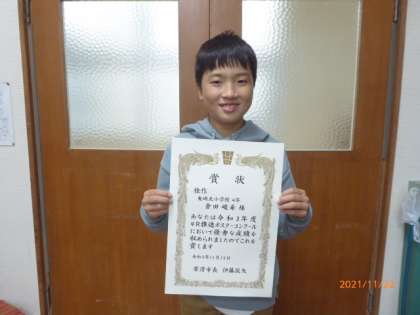 賞状
佳作
小学校 4年
倉田
あなたは令和3年度
推進ポスターコンクール
において優秀な成績を
収められましたのでこれを
賞します
令和3年11月
常滑市長 伊藤辰矢
2021/11/